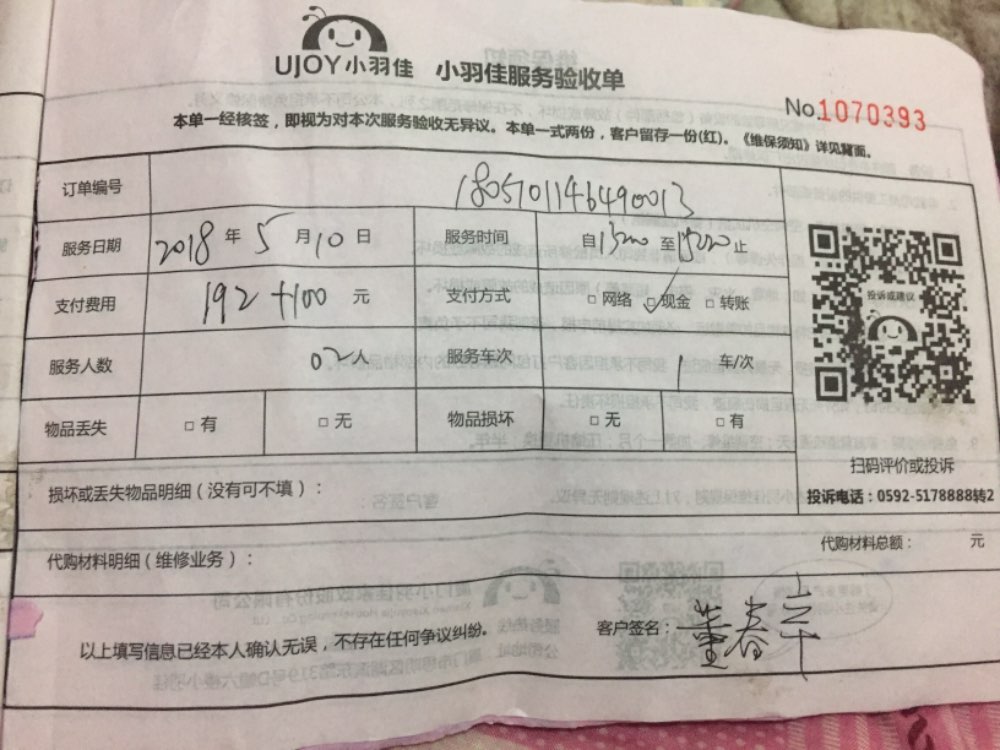 UJOY小羽佳 小羽佳服务验收单
No.1070393
本单一经核签，即视为对本次服务验收无异议。本单一式两份，客户留存一份(红)。《维保须知》详见冀面。
订单编号 1805101146490013
服务日期 2018 年 5 月 10 日 服务时间 自 至 止
支付费用 192+100 元 支付方式 □ 网络 □ 现金 □ 转账
投诉或建议
服务人数 02 人 服务车次 1 车/次
物品丢失 □ 有 □ 无 物品损坏 □ 无 □ 有
扫码评价或投诉
损坏或丢失物品明细（没有可不填）：
投诉电话：0592-5178888转2
代购材料明细（维修业务）：
代购材料总额： 元
以上填写信息已经本人确认无误，不存在任何争议纠纷。
客户签名：董春辛